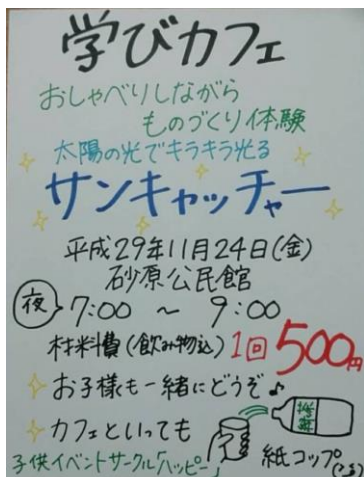 学びカフェ
おしゃべりしながら
ものづくり体験
太陽の光でキラキラ光る
サンキャッチャー
平成29年11月24日(金)
砂原公民館
夜 7:00 ~ 9:00
材料費(飲み物込) 1回 500円
お子様も一緒にどうぞ♪
カフェといっても
紙コップ
子供イベントサークル「ハッピー」